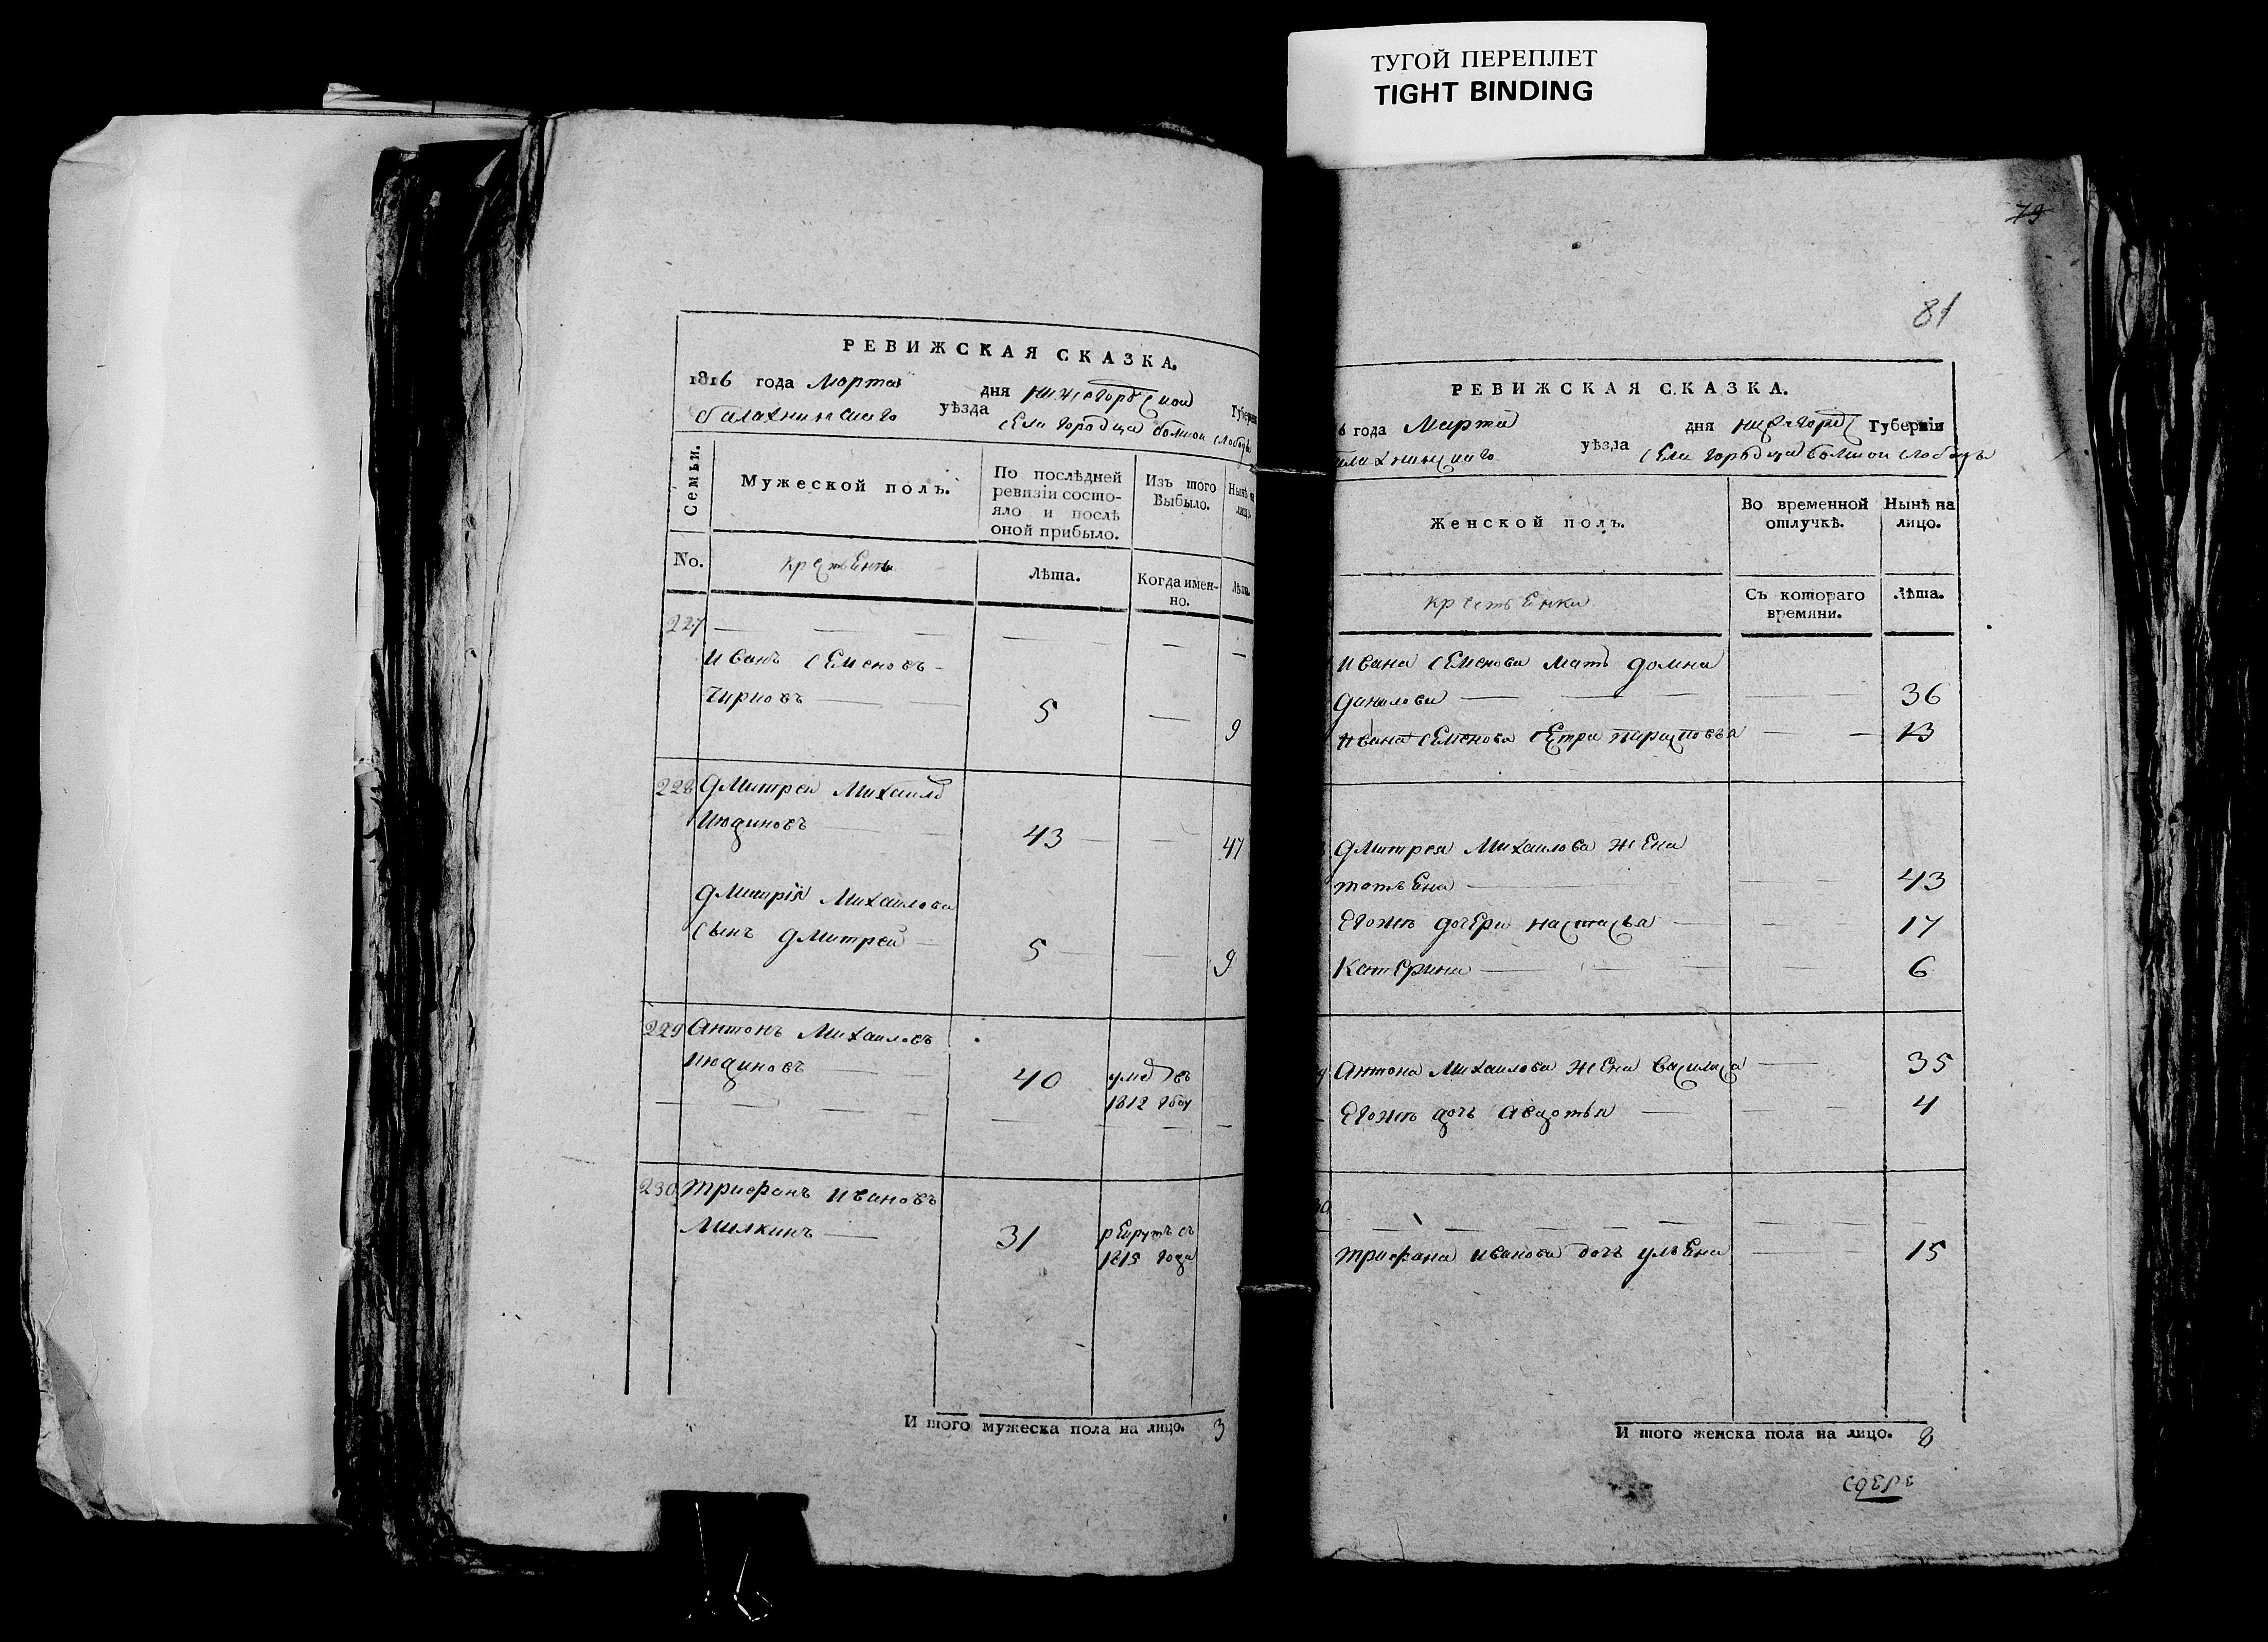 ТУГОЙ ПЕРЕПЛЕТ
TIGHT BINDING
РЕВИЖСКАЯ СКАЗКА.
1816 года Марта дня Губерн
уѣзда Села городца болшои слободы
Семьи.
Мужеской полъ.
По послѣдней ревизіи состо-
яло и послѣ
оной прибыло.
Изъ того
Выбыло.
Нынѣ на
лицо
No.
крестьяне
Лѣта.
Когда имен-
но.
лѣта
227
Иванъ Семеновъ
Чирковъ 5 9
228 Дмитреи Михаило
Июдиновъ 43 47
Дмитрія Михаилова
сынъ Дмитреи 5 9
229 Антонъ Михаиловъ
Июдиновъ 40 умре въ
1812 году
230 Трифанъ Ивановъ
Милкинъ 31 рекрутъ съ
1815 года
И того мужеска пола на лицо. 3
79
81
РЕВИЖСКАЯ СКАЗКА.
6 года Марта дня Губерніи
уѣзда Села городца болшои слободъ
Женской полъ.
Во временной
отлучкѣ.
Нынѣ на
лицо.
крестьенки
Съ котораго
времяни.
Лѣта.
Ивана Семенова мать Домна
Данилова 36
Ивана Семенова сестра 13
Дмитрея Михаилова жена
татьена 43
Евожъ дочери Настасья 17
Катерина 6
Антона Михаилова жена Василиса 35
Евожъ дочь Авдотья 4
Трифана Иванова дочь ульена 15
И того женска пола на лицо. 8